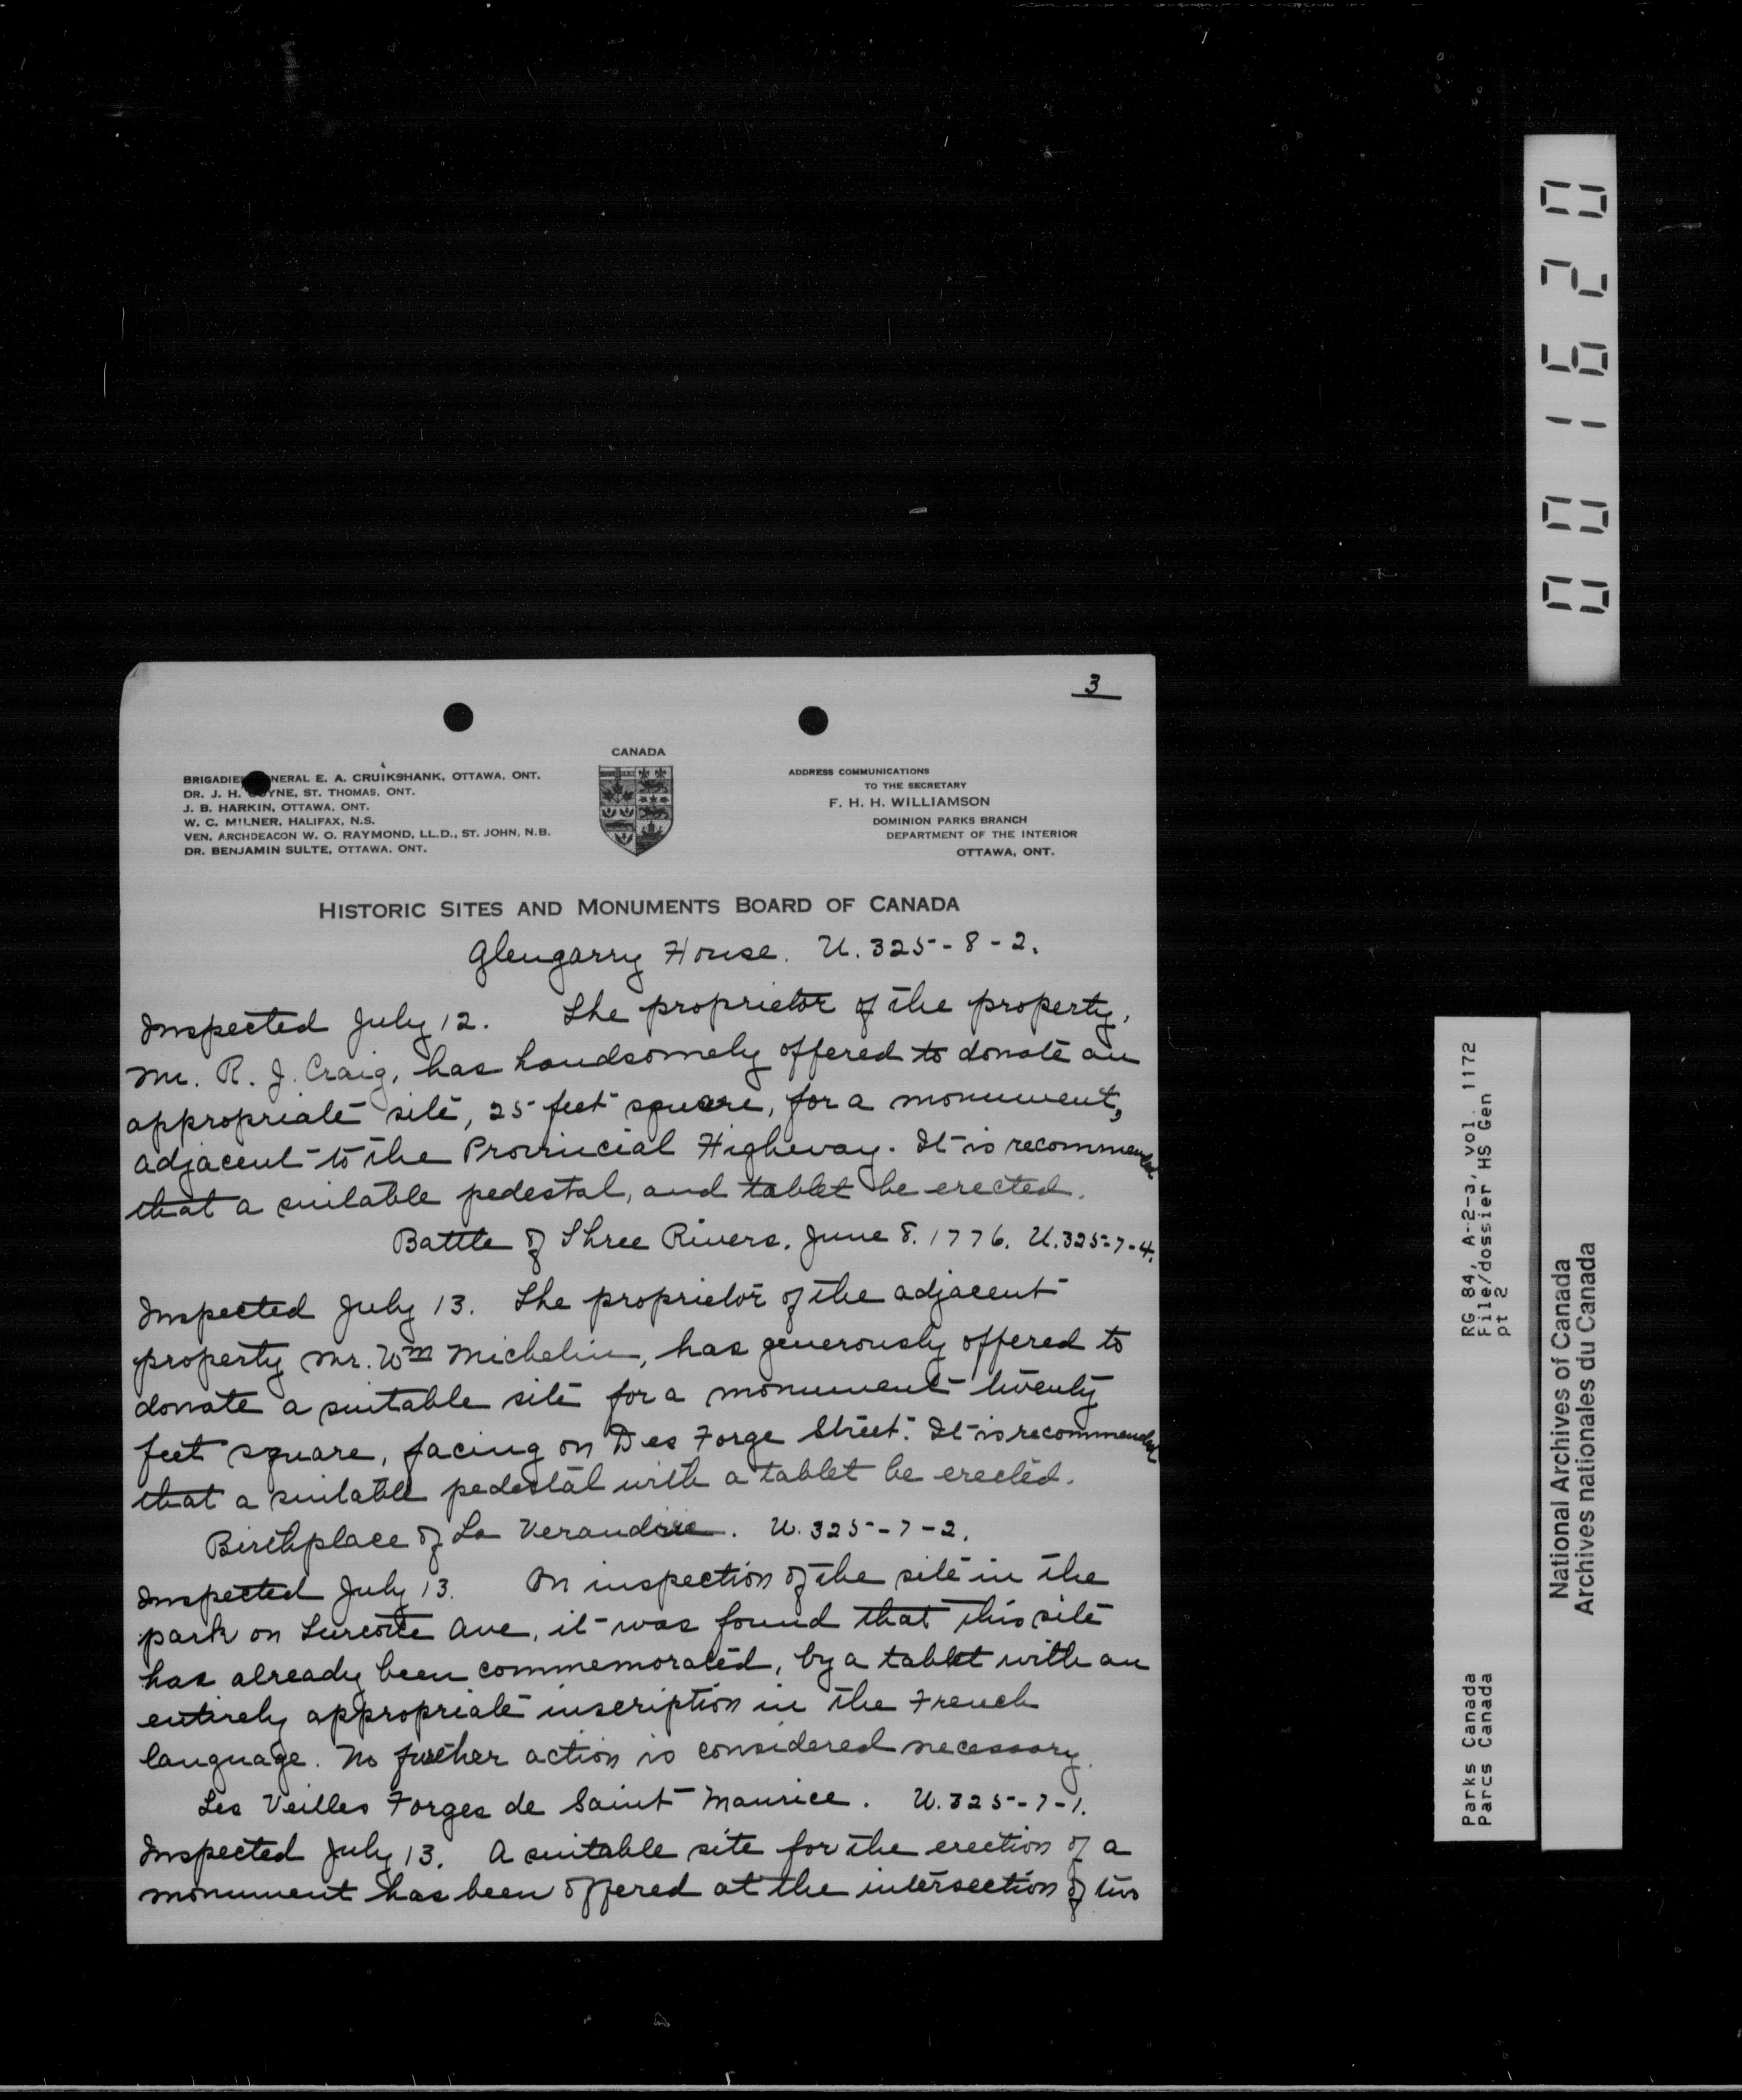 3
CANADA
BRIGADIE NERAL E. A. CRUIKSHANK, OTTAWA, ONT.
DR. J. H. YNE, ST. THOMAS, ONT.
J. B. HARKIN, OTTAWA, ONT.
W. C. MILNER, HALIFAX, N.S.
VEN. ARCHDEACON W. O. RAYMOND, LL.D., ST. JOHN, N.B.
DR. BENJAMIN SULTE, OTTAWA, ONT.
ADDRESS COMMUNICATIONS
TO THE SECRETARY
F. H. H. WILLIAMSON
DOMINION PARKS BRANCH
DEPARTMENT OF THE INTERIOR
OTTAWA, ONT.
HISTORIC SITES AND MONUMENTS BOARD OF CANADA
Glengarry House. U. 325-8-2.
Inspected July 12. The proprietor of the property,
Mr. R. J. Craig, has handsomely offered to donate an
appropriate site, 25 feet square, for a monument,
adjacent to the Provincial Highway. It is recommended
that a suitable pedestal, and tablet be erected.
Battle of Three Rivers. June 8. 1776. U. 325-7-4.
Inspected July 13. The proprietor of the adjacent
property Mr. Wm Michelin, has generously offered to
donate a suitable site for a monument twenty
feet square, facing on Des Forge Street. It is recommended
that a suitable pedestal with a tablet be erected.
Birthplace of La Verandrie. U. 325-7-2.
Inspected July 13. On inspection of the site in the
park on Turcotte Ave, it was found that this site
has already been commemorated, by a tablet with an
entirely appropriate inscription in the French
language. No further action is considered necessary.
Les Veilles Forges de Saint Maurice. U. 325-7-1.
Inspected July 13. A suitable site for the erection of a
monument has been offered at the intersection of two
001620
RG 84, A-2-a, vol. 1172
File/dossier HS Gen
pt 2
Parks Canada
Parcs Canada
National Archives of Canada
Archives nationales du Canada